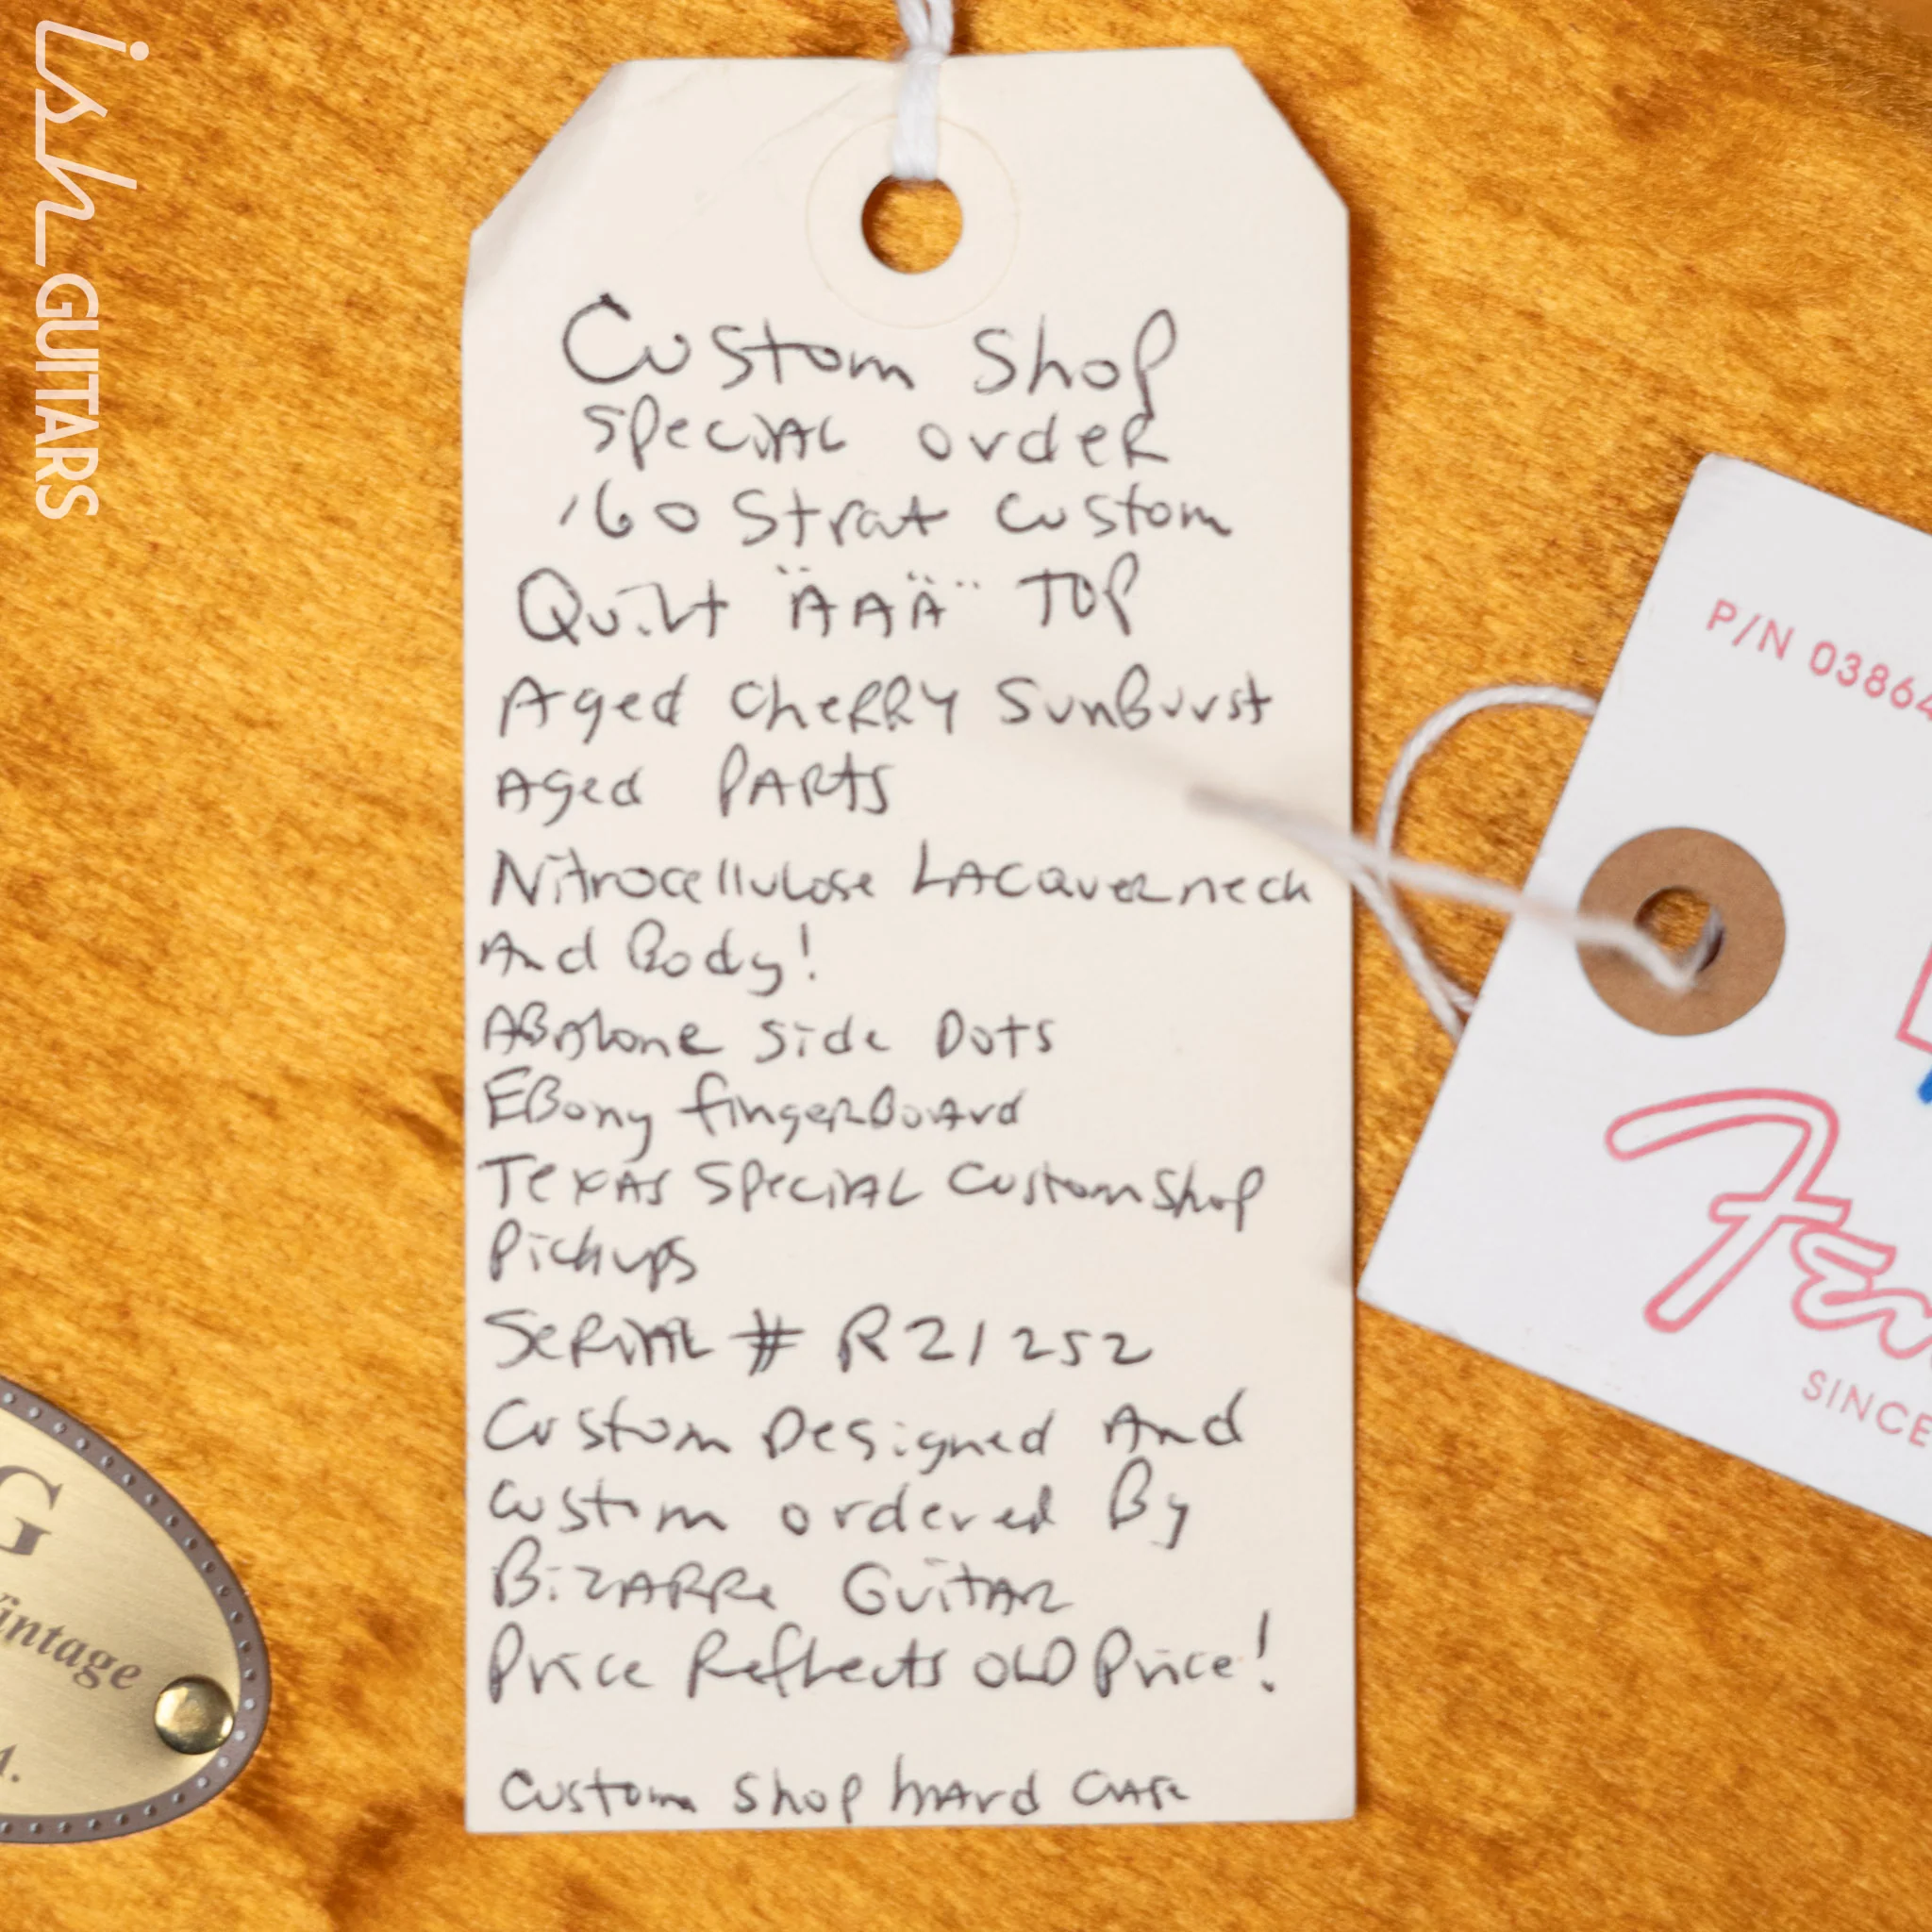 ish GUITARS
Custom Shop
Special order
'60 Strat Custom
Quilt "AAA" Top
Aged Cherry SunBurst
Aged Parts
Nitrocellulose Lacquer neck
And Body!
Abalone Side Dots
EBony fingerBoard
Texas Special Custom Shop
Pickups
Serial # R21252
Custom Designed And
Custom ordered By
Bizarre Guitar
Price Reflects OLD Price!
Custom Shop hard Case
P/N 03864
Fen
SINCE
G
Vintage